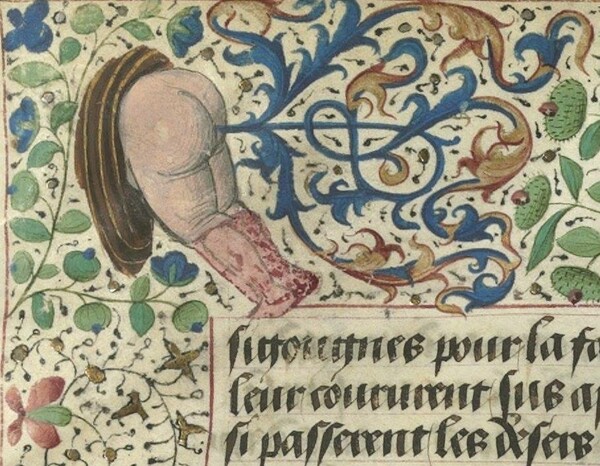 sitougnes pour la fa
leur coururent sus a
si passerent les desers